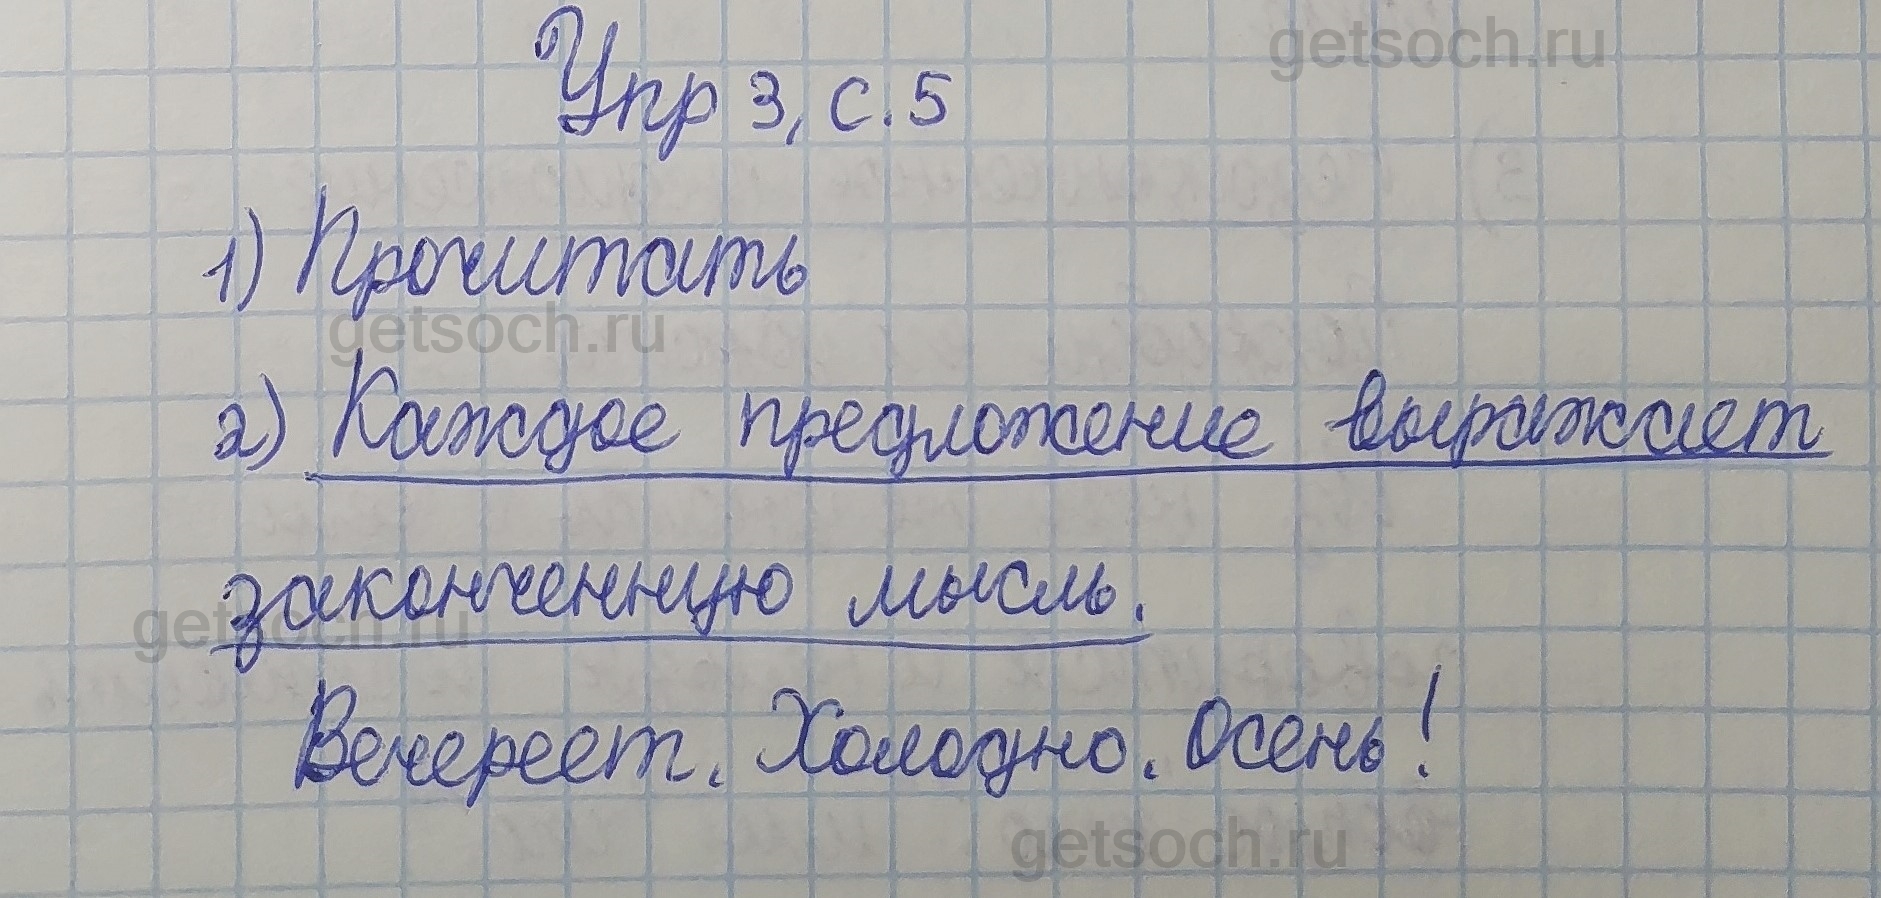 getsoch.ru
Упр 3, с. 5
1) Прочитать
getsoch.ru
2) Каждое предложение выражает
законченную мысль.
getsoch.ru
Вечереет. Холодно. Осень!
getsoch.ru